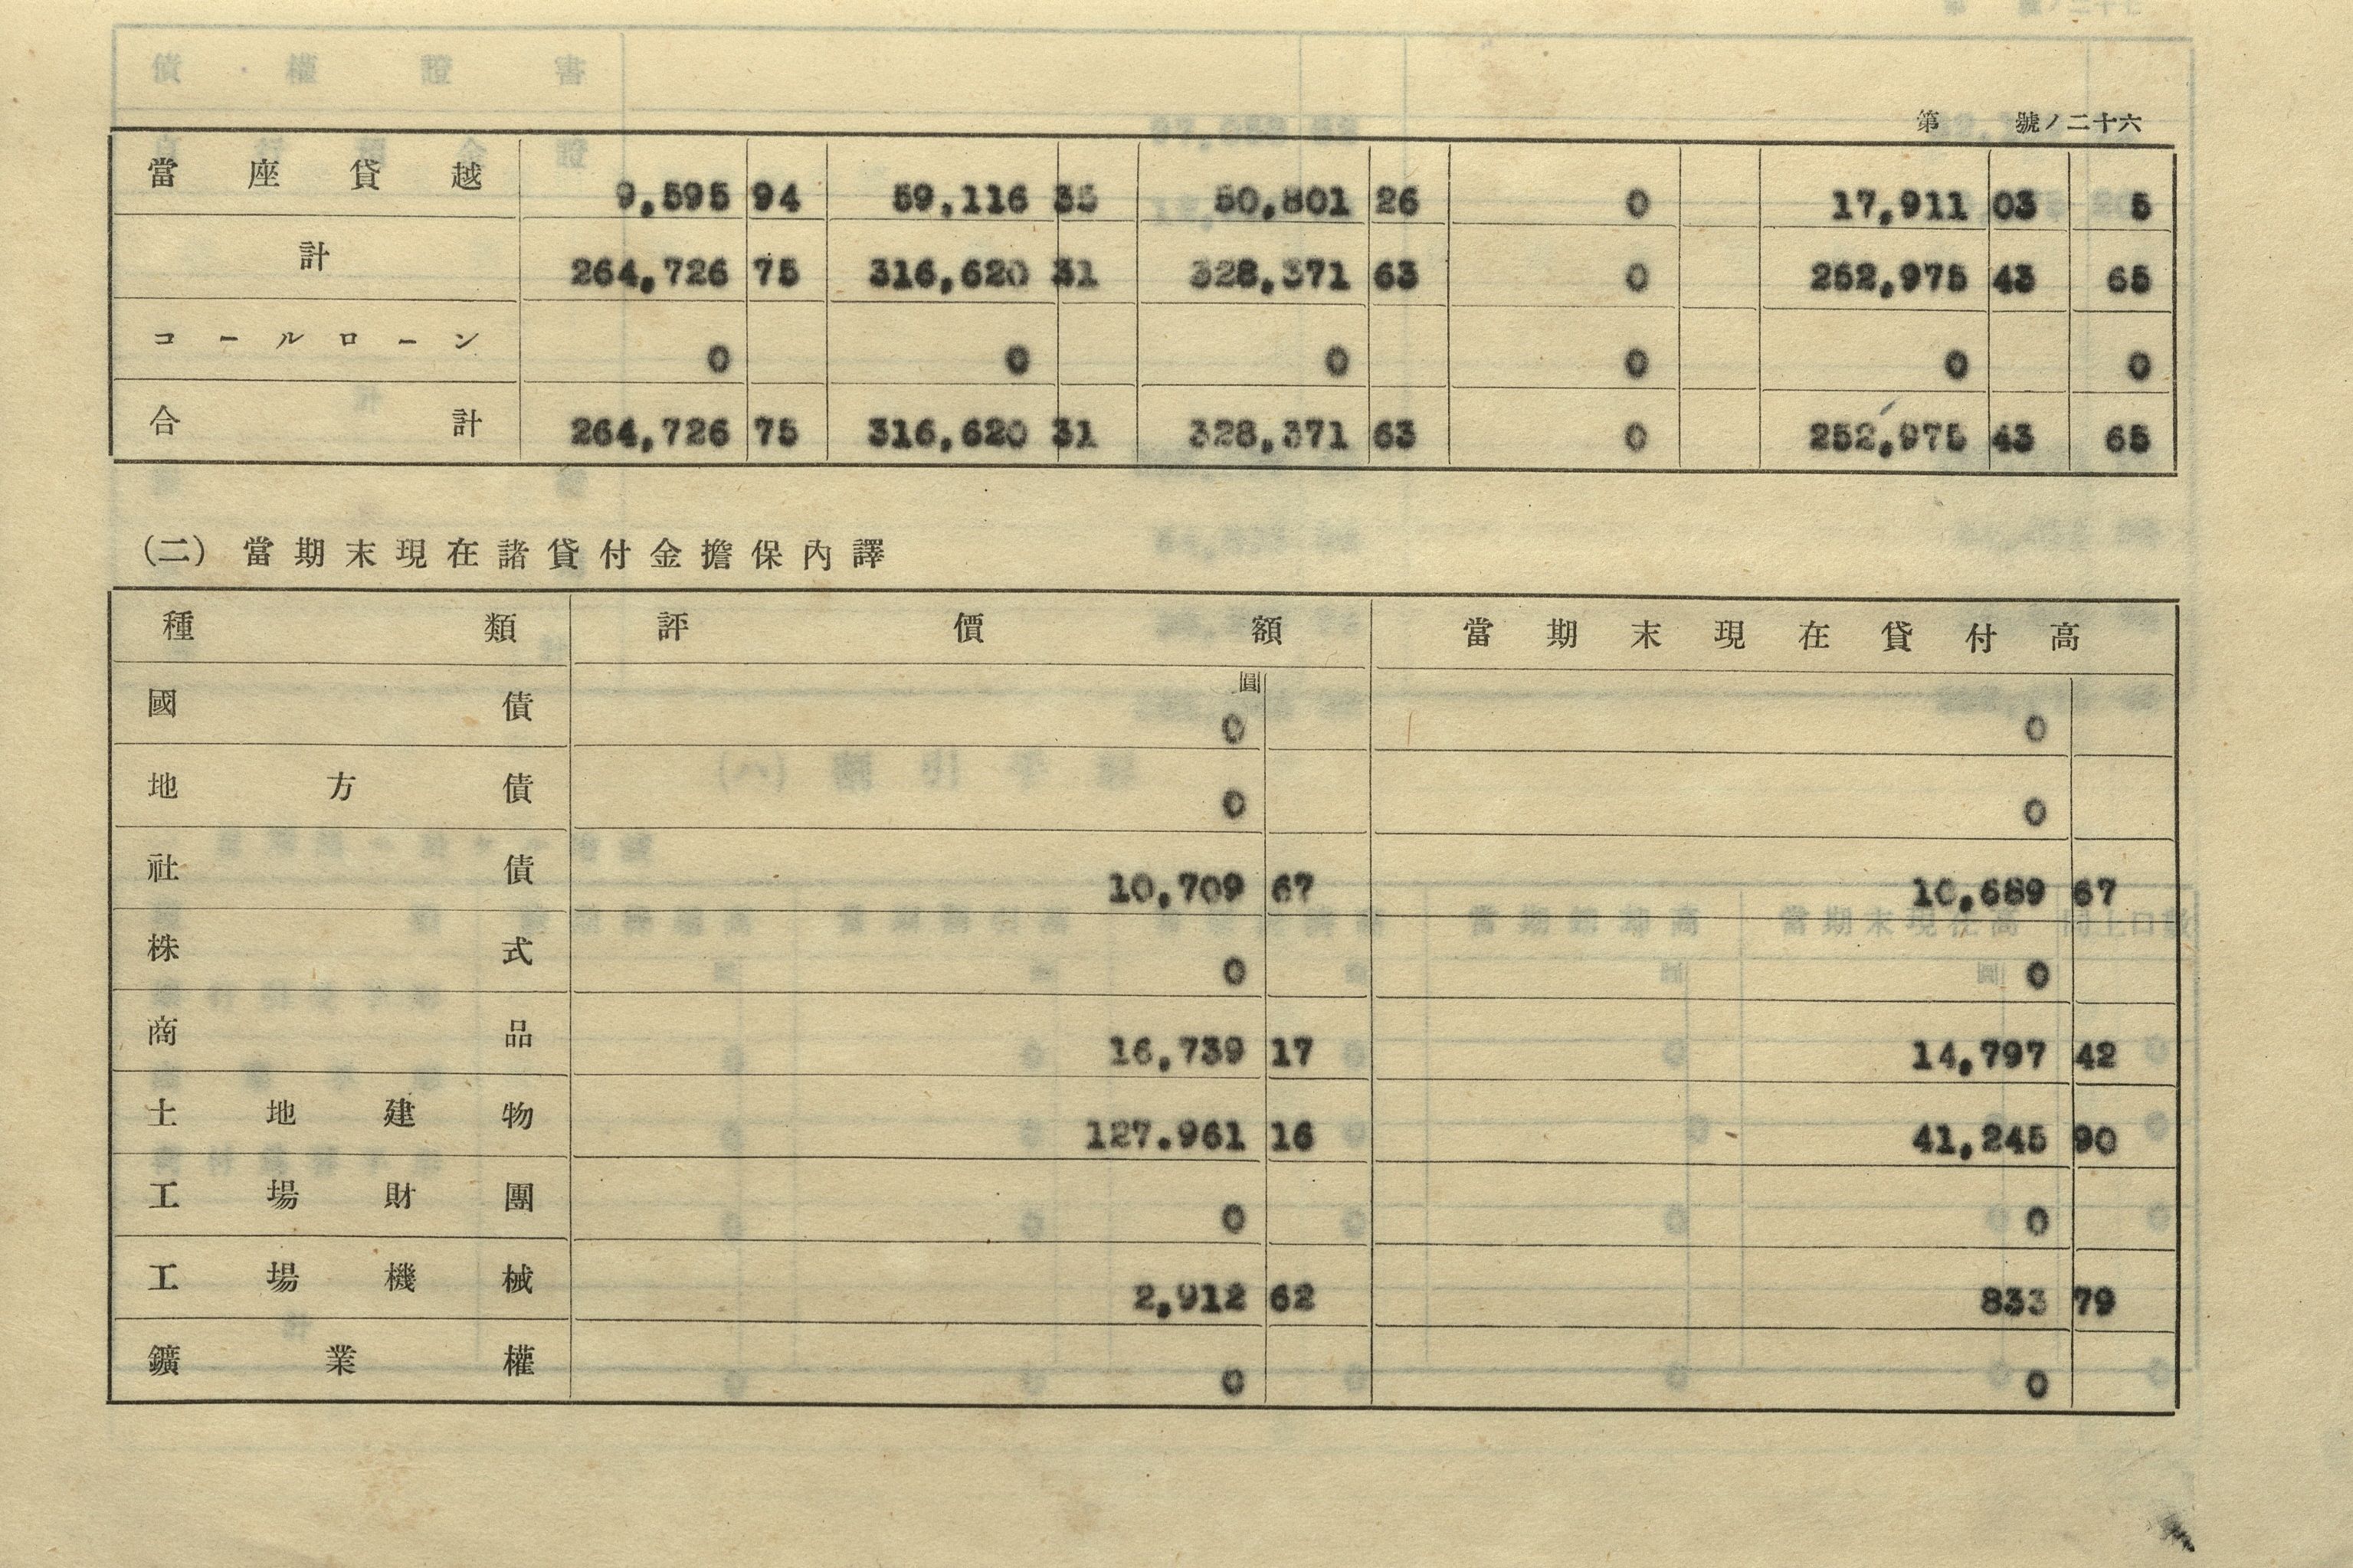 第　號ノ二十六
當座貸越 9,595 94 59,116 35 50,801 26 0 17,911 03 5
計 264,726 75 316,620 31 328,371 63 0 252,975 43 65
コールローン 0 0 0 0 0 0
合計 264,726 75 316,620 31 328,371 63 0 252,975 43 65
(二) 當期末現在諸貸付金擔保內譯
種類 評價額 當期末現在貸付高
圓
國債 0 0
地方債 0 0
社債 10,709 67 10,689 67
株式 0 0
商品 16,739 17 14,797 42
土地建物 127.961 16 41,245 90
工場財團 0 0
工場機械 2,912 62 833 79
鑛業權 0 0